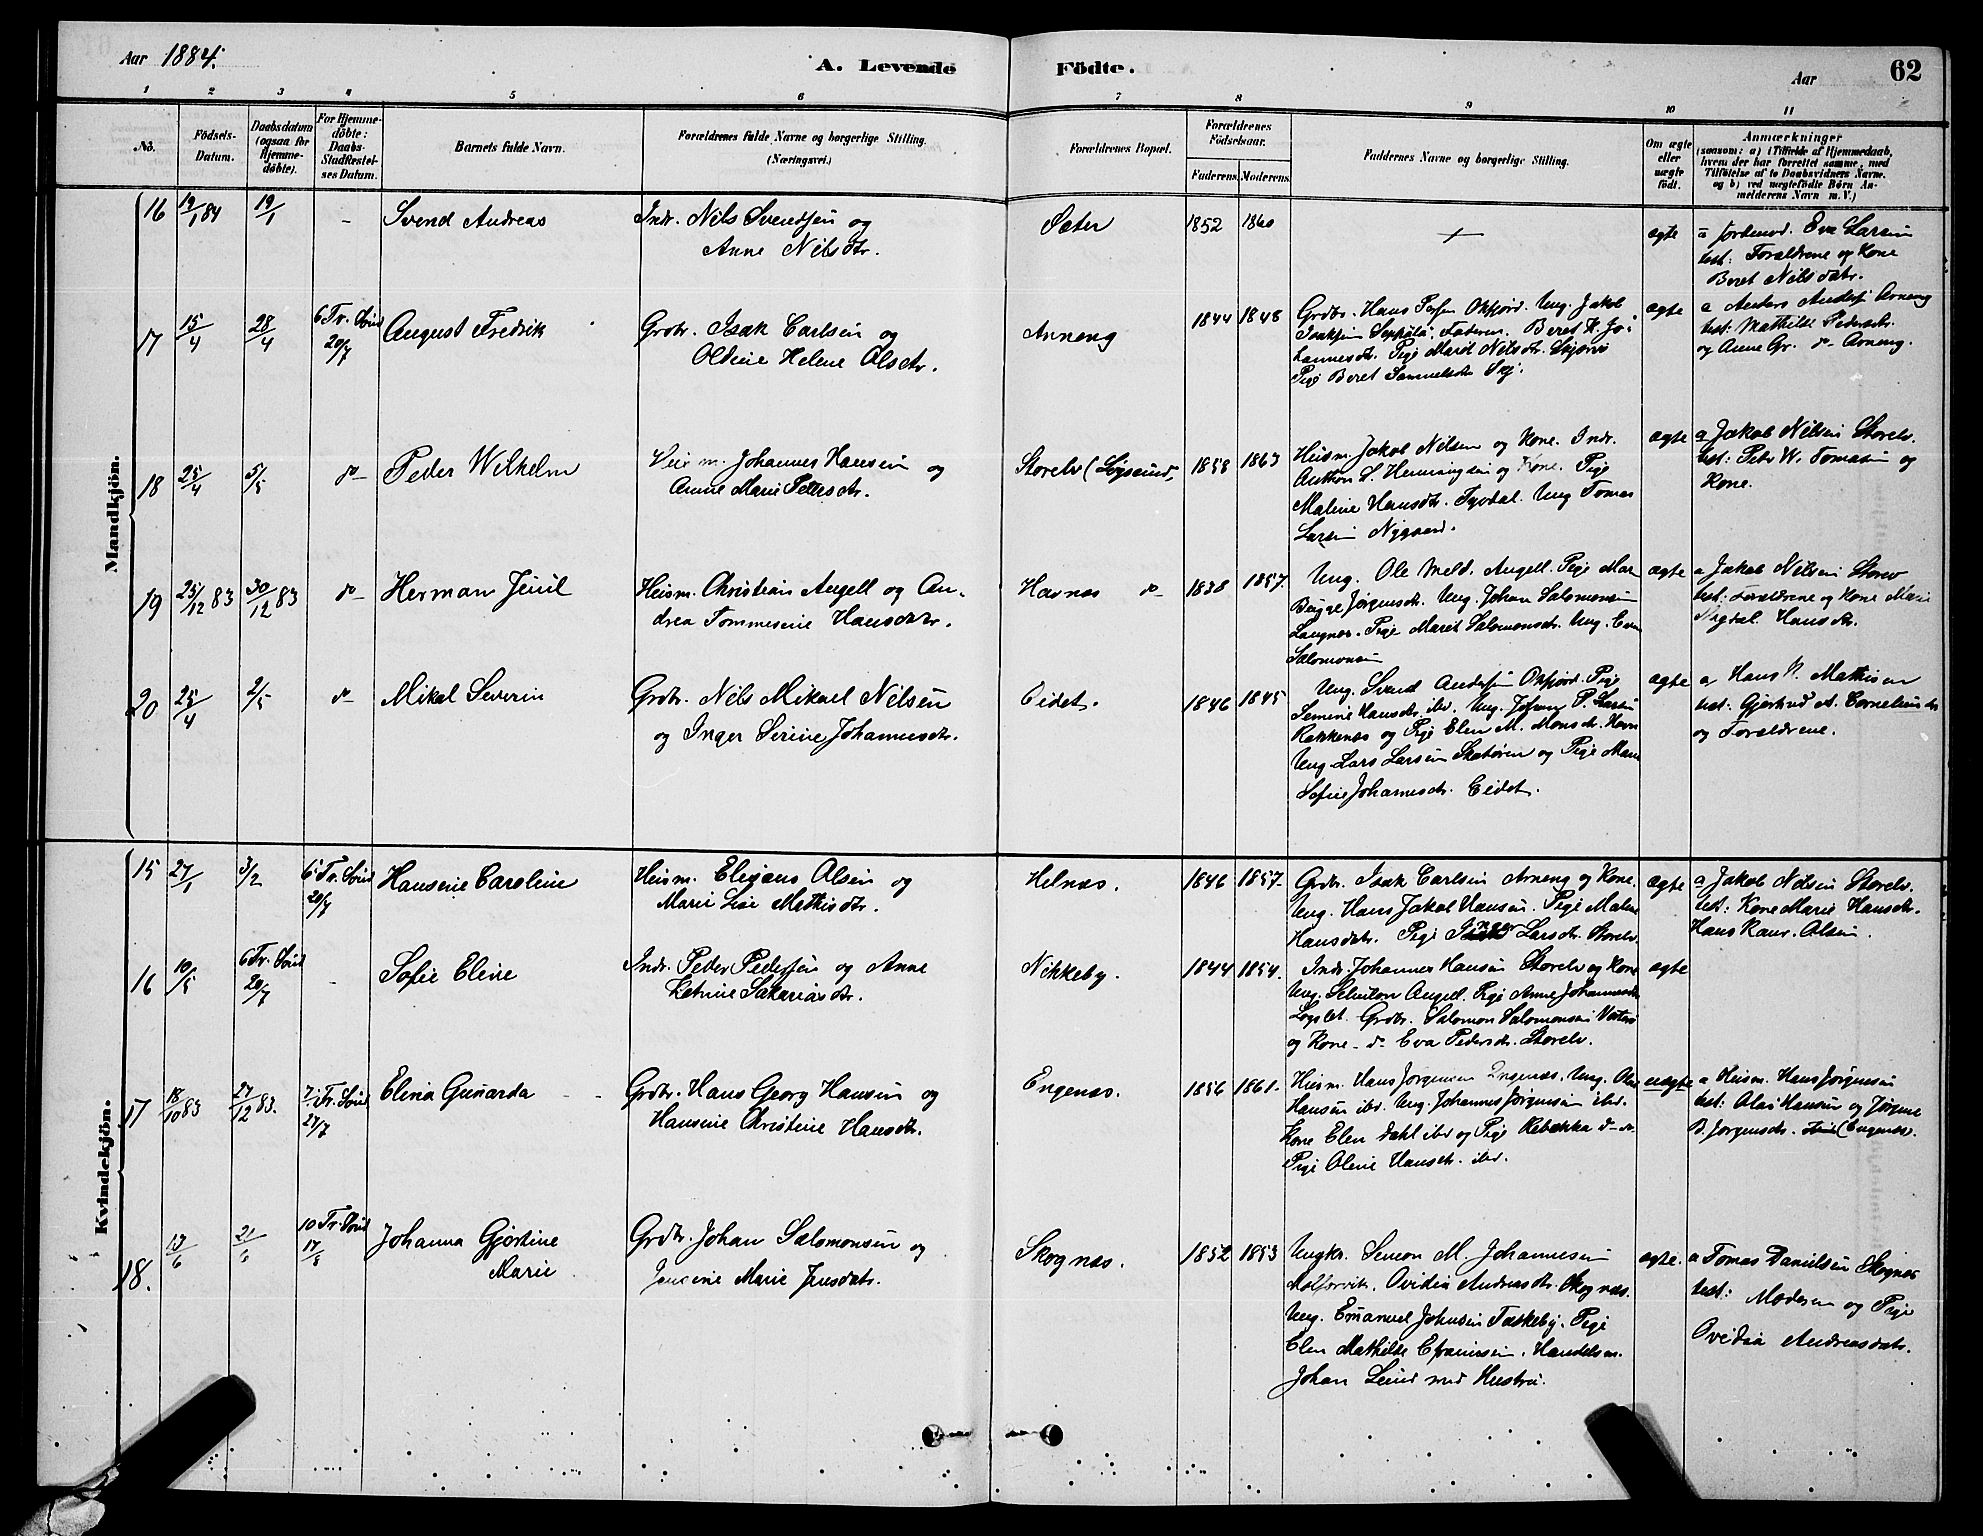 Aar 1884.
A. Levende Födte.
Aar
62
1 2 3 4 5 6 7 8 9 10 11
No.
Födsels-
Datum.
Daabsdatum
(ogsaa for
Hjemme-
döbte).
For Hjemme-
döbte:
Daabs-
Stadfæstel-
ses Datum.
Barnets fulde Navn.
Forældrenes fulde Navne og borgerlige Stilling.
(Næringsvei.)
Forældrenes Bopæl.
Forældrenes
Födselsaar.
Faderens. Moderens.
Faddernes Navne og borgerlige Stilling.
Om ægte
eller
uægte
födt.
Anmærkninger
(saasom: a) i Tilfælde af Hjemmedaab,
hvem der har forrettet samme, med
Tilföielse af to Daabsvidners Navne.
og b) ved uægtefödte Börn An-
melderens Navn m. V.)
Mandkjön.
16 19/1 84 19/1 - Svend Andreas
Indr. Nils Svendsen og
Anne Nilsdtr.
Sæter 1852 1860 ægte
a Jordmod. Eva Larsen
test: Forældrene og Kone
Beret Nilsdatr.
17 15/4 28/4 6 Tr. Sønd 20/7 August Fredrik
Grdbr. Isak Carlsen og
Oldine Helene Olsdtr.
Arneng 1844 1848
Grdbr. Hans Ung. Jakob
Isaksen Faderen. Beret H. Jo-
hannesdtr. Pige Marit Nilsdtr. Skjervø
Pige Beret Samuelsdtr Skj.
ægte
a Anders Anders. Arneng
test: Mathilde Pedersdtr.
og Anne Gr. do- Arneng.
18 25/4 5/5 do- Peder Wilhelm
Heism. Johannes Hansen og
Anne Marie Petersdtr.
Storelv (Logsund, 1858 1863
Heism. Jakob Nilsen og Kone. Indr.
Anthon L. Henningsen og Kone. Pige
Maline Hansdtr. Ung Tomas
Larsen Nygaard.
ægte
a Jakob Nilsen Storelv.
test: Peter W. Tomasen og
Kone.
19 25/12 83 30/12 83 do- Herman Juul
Heism. Christian Angell og An-
drea Tommesine Hansdatr.
Havnæs do- 1838 1857.
Ung. Ole Meld. Angell. Pige Mar
Bugge Jørgensdtr. Ung. Johan Salomonsen
Langnes. Pige Marit Salomonsdtr. Ung.
Salomonsen
ægte
a Jakob Nilsen Storelv
test: Forældrene og Kone Marie
Hansdtr.
20 25/4 2/5 do- Mikal Severin
Grdbr. Nils Mikael Nilsen
og Inger Serine Johannesdtr.
Eidet. 1846 1845
Ung. Svend Anders. Oxfjord. Pige
Semine Hansdtr. ibd. Ung. Johan P. Larsen
Rakkenæs og Pige Elen M. Monsdtr. Havn
Ung. Lars Larsen Skatøren og Pige Mari
Sofie Johannesdtr. Eidet.
ægte
a Hans N. Mathisen
test: Gjertrud M. Corneliusdtr
og Forældrene.
Kvindekjön.
15 27/1 3/2 6 Tr. Sønd 20/7 Hansine Caroline
Heism. Elizæus Olsen og
Marie Lise Mathisdtr.
Helnæs. 1846 1857.
Grdbr. Isak Carlsen Arneng og Kone.
Ung. Hans Jakob Hansen. Pige Maline
Hansdatr. Pige Inger Larsdtr. Storelv
ægte
a Jakob Nilsen Storelv.
test: Kone Marie Hansdtr.
Hans Kaur. Olsen.
16 10/5 6 Tr. Sønd 20/7 - Sofie Eline
Indr. Peder Pedersen og Anne
Katrine Sakariasdtr.
Nikkeby. 1844 1854.
Indr. Johannes Hansen Storelv og Kone
Ung. Angell. Pige Anne Johannesdtr
Logslet. Grdbr. Salomon Salomonsen
og Kone do- Eva Pedersdtr. Storelv.
ægte
17 18/10 83 27/12 83. 7 Tr. Sønd 27/7 Elina Gunarda
Grdbr. Hans Georg Hansen og
Hansine Christine Hansdtr.
Engenæs. 1856 1861.
Heism. Hans Jørgensen Engenæs. Ung. Olai
Hansen ibd. Ung. Johannes Jørgensen ibd.
Kone Elen Dahl ibd og Pige Rebekka do-
Pige Oline Hansdtr. ibd.
uægte
a Heism. Hans Jørgensen
test: Olai Hansen og Jørgine
B. Jørgensdtr. (Engenæs).
18. 13/6 21/6 10 Tr. Sønd 17/8 Johanna Gjørtine
Marie
Grdbr. Johan Salomonsen og
Jensine Marie Jensdatr.
Skognæs. 1852 1853
Ungkr. Simon M. Johannesen
Molforvik. Ovidia Andreasdtr. Skognæs.
Ung. Emanuel Johnsen Taskeby. Pige
Elen Mathilde Efraimsen. Handelsm.
Johan Lund med Hustru.
ægte.
a Tomas Danielsen Skognæs
test: Moderen og Pige
Ovidia Andreasdatr.